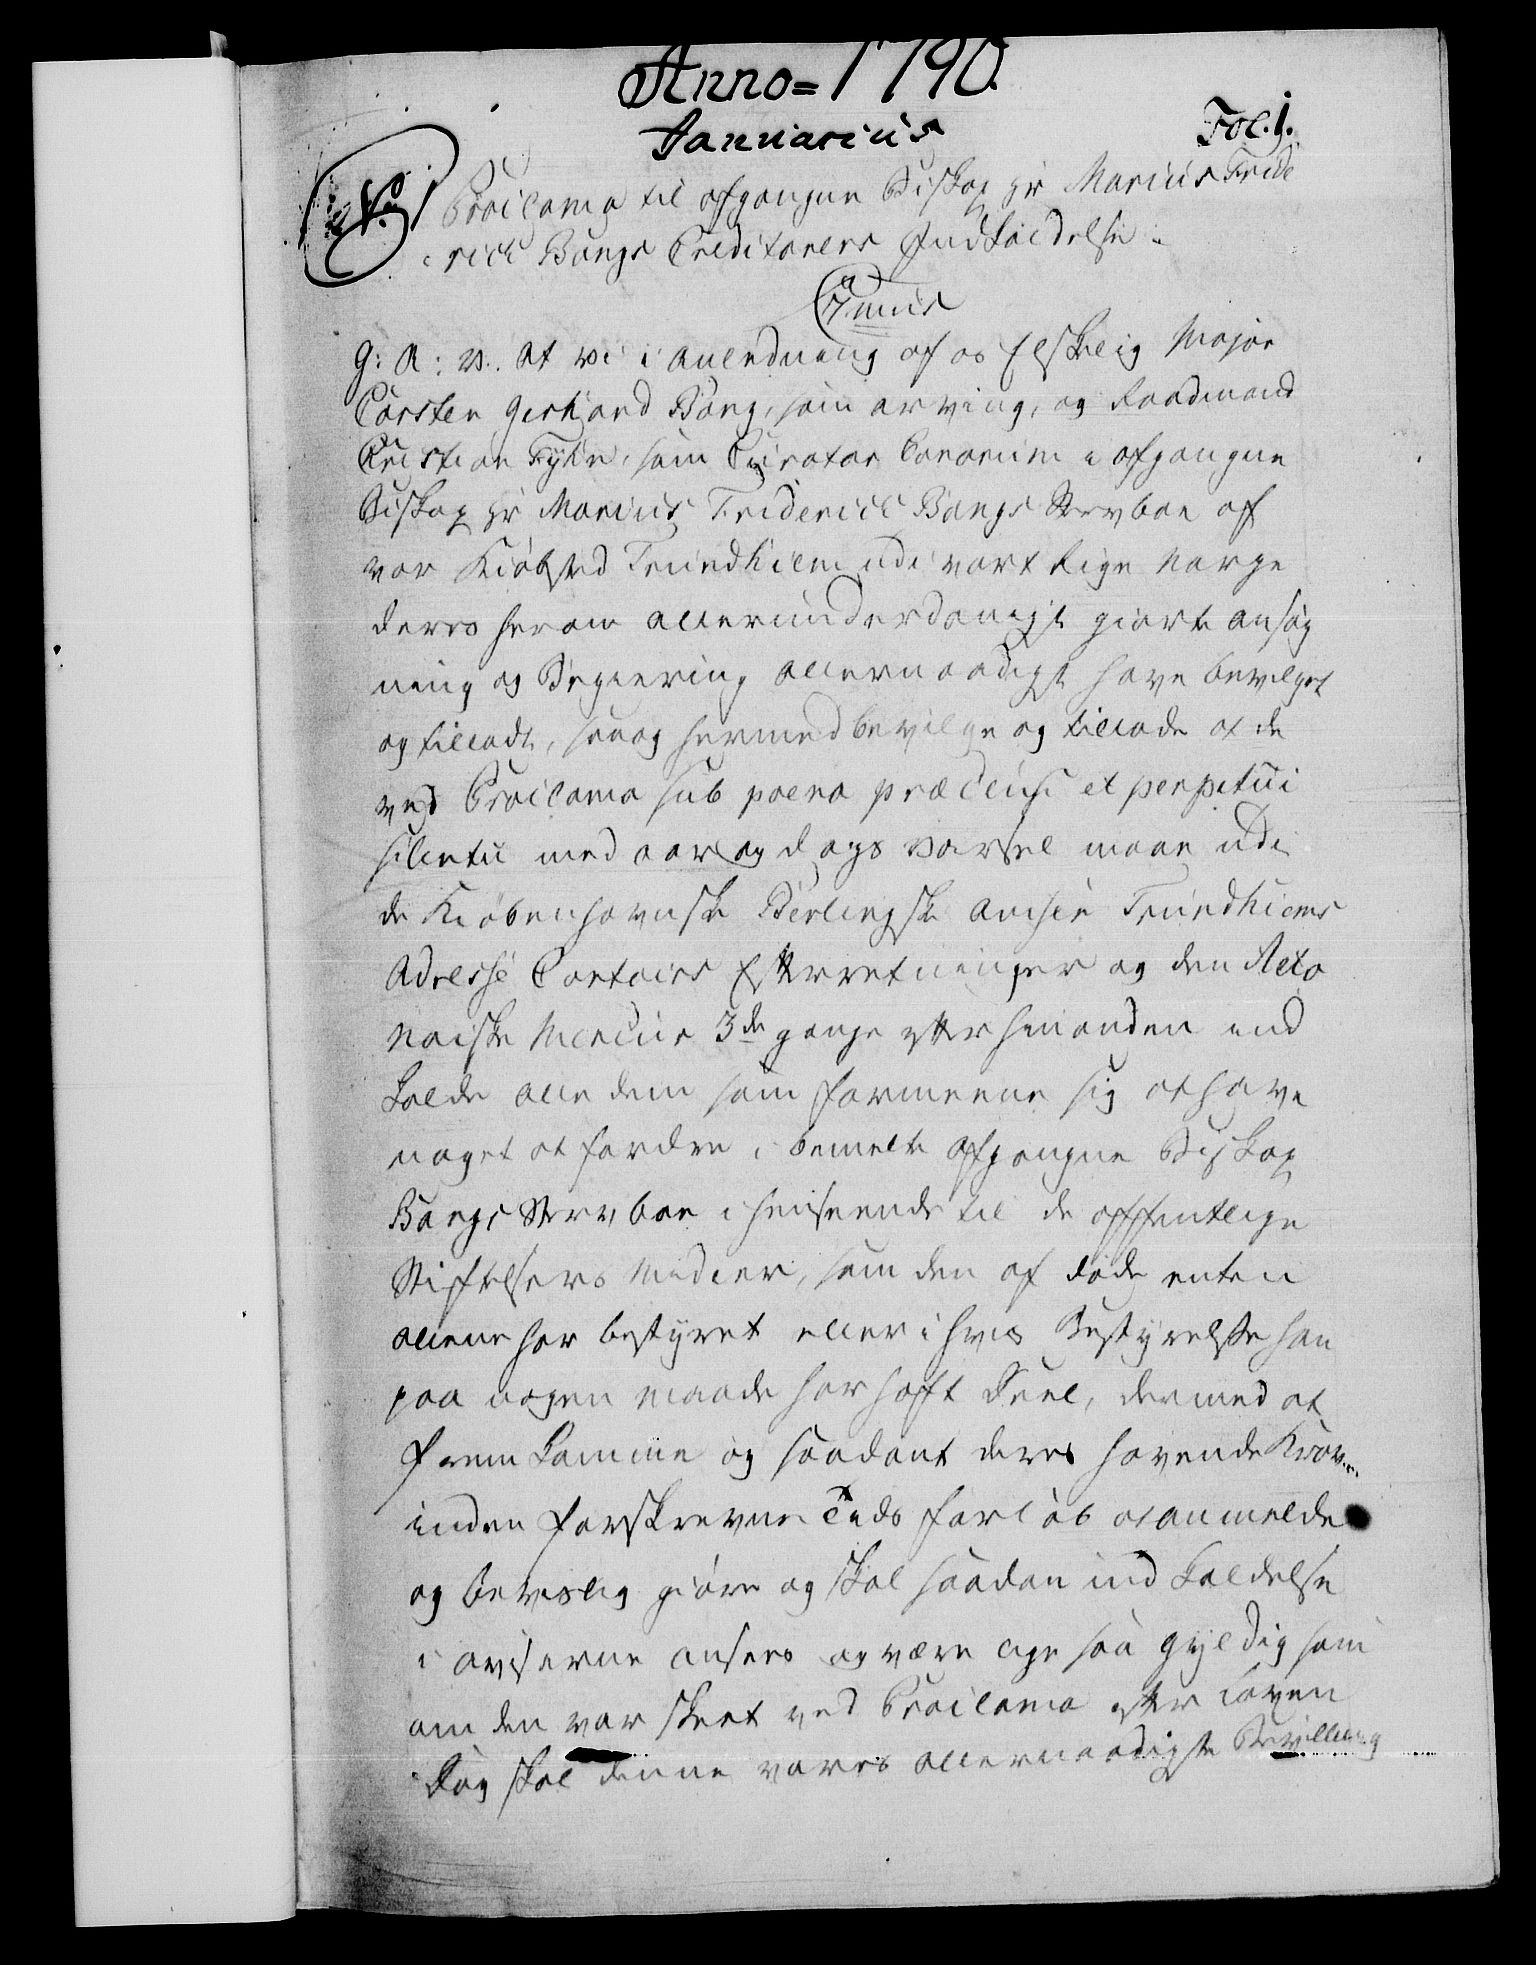 Anno = 1790.
Januarius
Fol. 1.
Proclama til afgangne Biskop Hr Marius Fride
rich Bangs Creditorers Indkaldelse.
G: A: V. At vi i Anledning af os Elskelig Major
Carsten Gerhard Bang, som Arving, og Raadmand
Christian Lyhn, som Curator bonorum i afgangne
Biskop Hr Marius Friderich Bangs Stervboe af
vor Kiøbsted Trundhiem udi vort Rige Norge
deres herom allerunderdanigst giorte Ansøg
ning og Begiering allernaadigst have bevilget
og tilladt, saa og hermed bevilge og tillade at de
ved Proclama sub poena præclusi et perpetui
silentii med Aar og Dags Varsel maae udi
de Kiøbenhavnske Berlingske Aviser Trundhiems
Adresse Contoirs Efterretninger og den Alto
naiske Mercur 3de gange efter hinanden ind
kalde alle dem som formeene sig at have
noget at fordre i bemelte afgangne Biskop
Bangs Stervboe i henseende til de offentlige
Stiftelsers Midler, som den afdøde enten
allene har bestyret eller i hvis Bestyrelse han
paa nogen Maade har haft Deel, dermed at
fremkomme og saadant deres havende Krav
inden forskrevne Tids Forløb at anmelde
og beviislig giøre og skal saadan indkaldelse
i Aviserne ansees og være lige saa gyldig som
om den var skeet ved Proclama efter Loven
Dog skal denne vores allernaadigste Bevilling